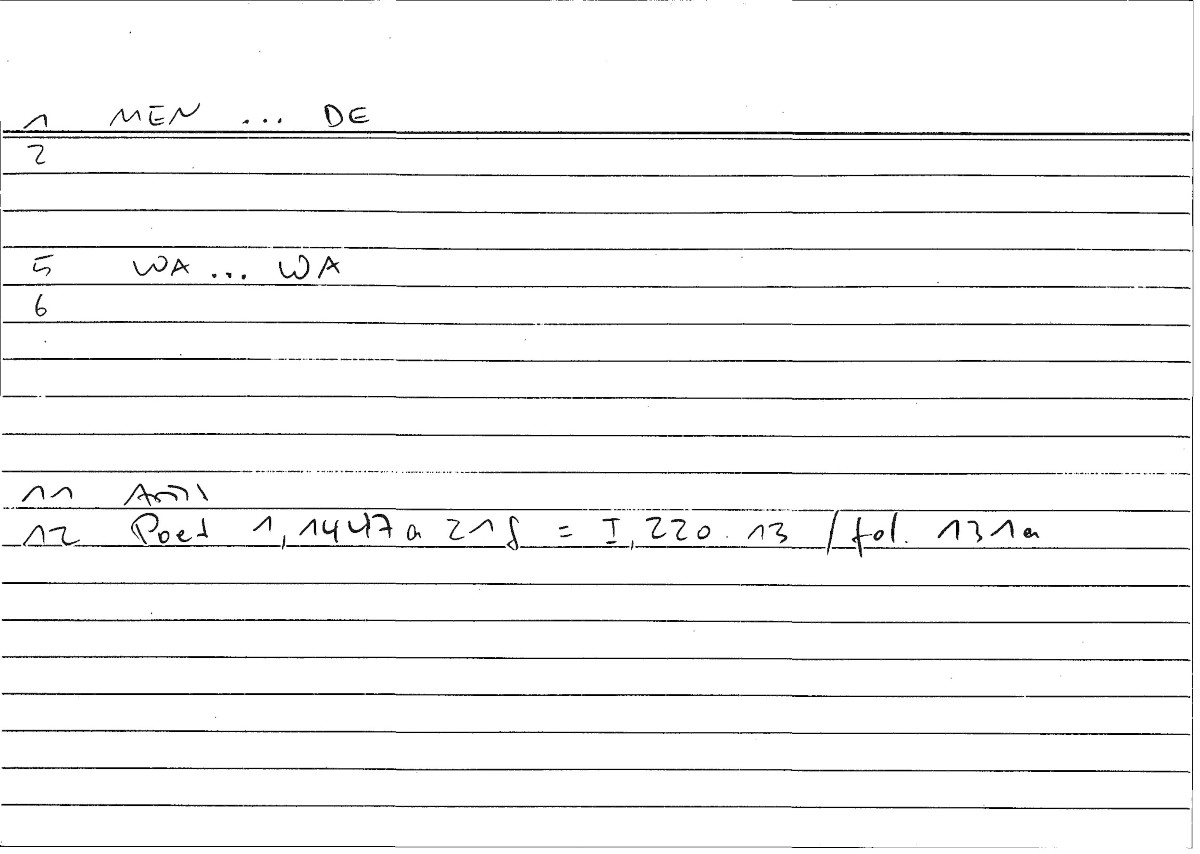 1 MEN ... DE
2
5 WA ... WA
6
11
12 Poet 1,1447a 21f = I, 220. 13 / fol. 131a